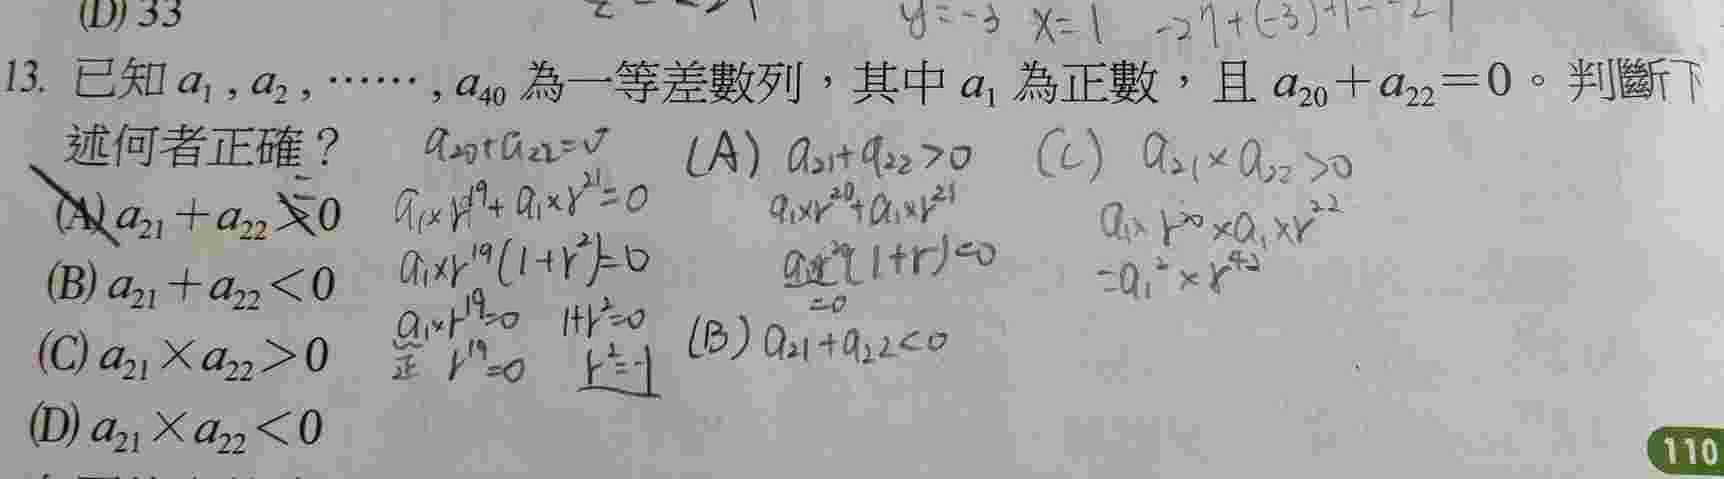 (D) 33
y=-3 x=1
13. 已知 a₁ , a₂ , …… , a₄₀ 為一等差數列，其中 a₁ 為正數，且 a₂₀＋a₂₂＝0。判斷下
述何者正確？
(A) a₂₁＋a₂₂＞0
(B) a₂₁＋a₂₂＜0
(C) a₂₁×a₂₂＞0
(D) a₂₁×a₂₂＜0
a₂₀+a₂₂=
a₁×r¹⁹+a₁×r²¹=0
a₁×r¹⁹(1+r²)=0
a₁×r¹⁹=0 1+r²=0
正 r¹⁹=0 r²=-1
(A) a₂₁+a₂₂>0
a₁×r²⁰+a₁×r²¹
(1+r)=0
=0
(B) a₂₁+a₂₂<0
(C) a₂₁×a₂₂>0
a₁×r²⁰×a₁×r²²
=a₁²×r⁴²
110